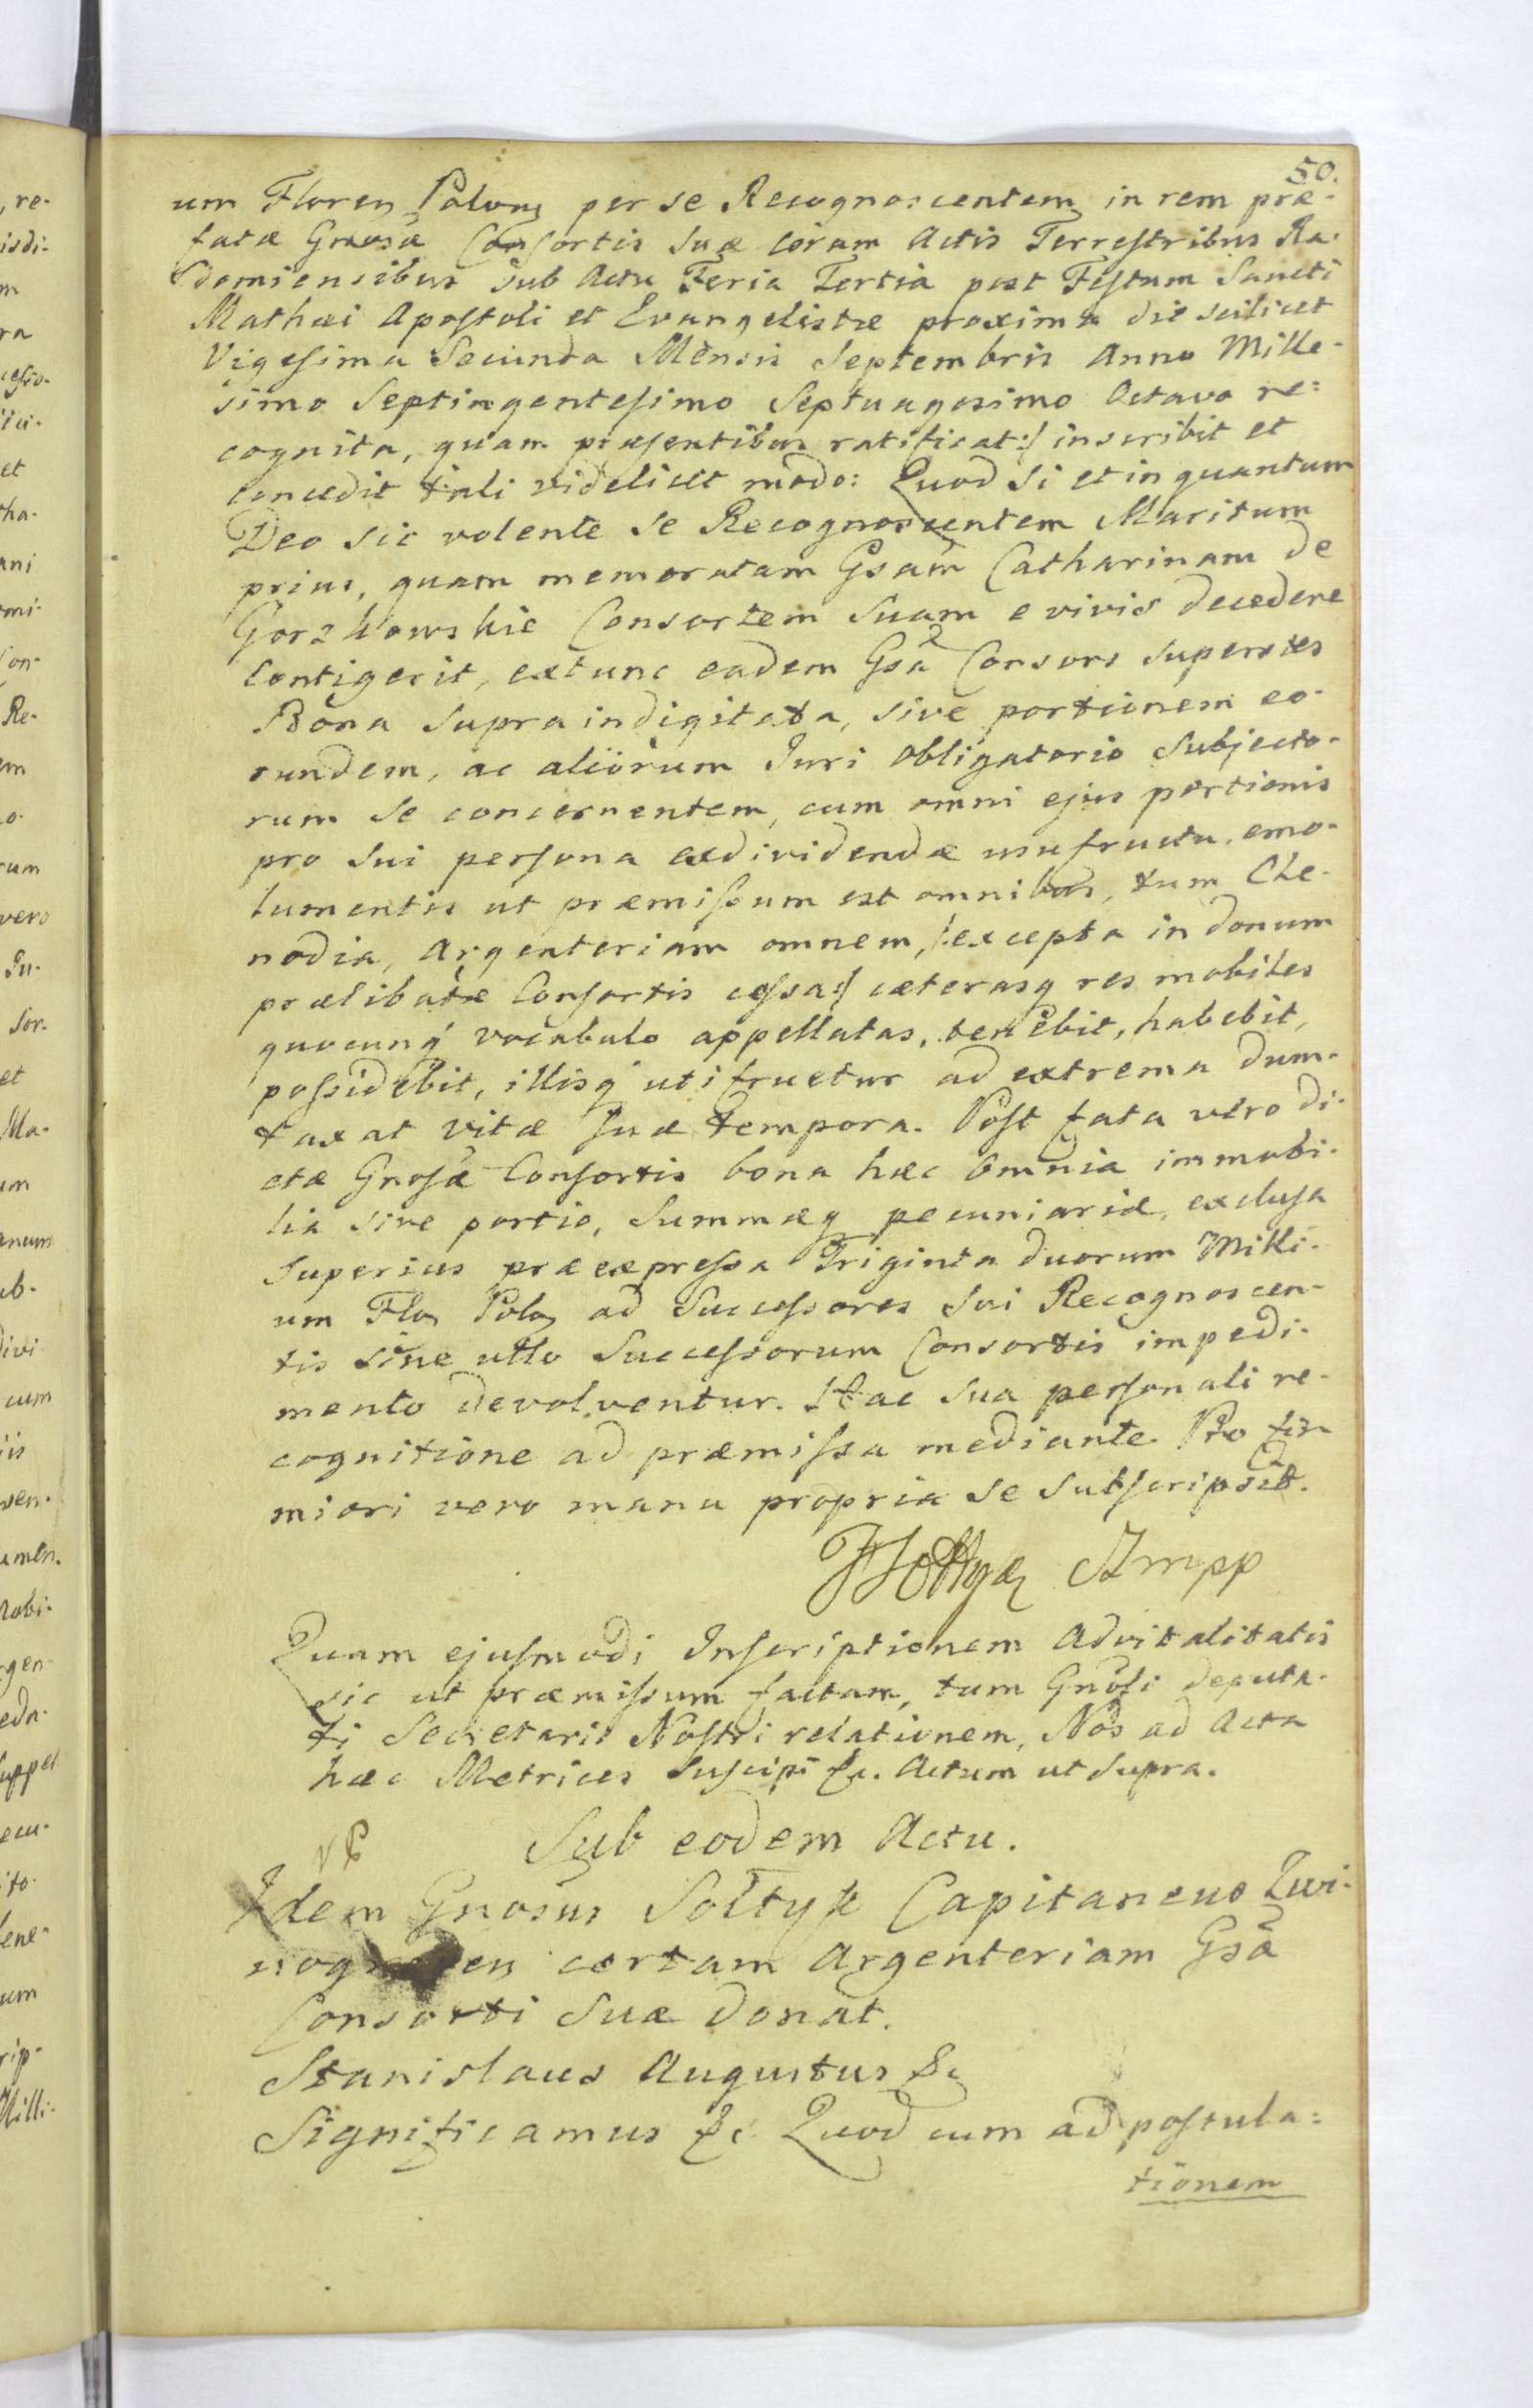 50.
um Floren Polon per se Recognoscentem in rem præ-
fatæ Gnosæ Consortis suæ coram Actis Terrestribus Ra-
domiensibus sub Actu Feria Tertia post Festum Sancti
Mathæi Apostoli et Evangelistæ proxima die scilicet
Vigesima Secunda Mensis Septembris Anno Mille-
simo Septingentesimo Septuagesimo Octavo re=
cognita, quam præsentibus ratificat:/ inscribit et
concedit tali videlicet modo: Quod si et in quantum
Deo sic volente se Recognoscentem Maritum
prius, quam memoratam Gsam Catharinam de
Gorzkowskie Consortem Suam e vivis decedere
contigerit, extunc eadem Gsa Consors superstes
Bona supra indigitata, sive portionem eo-
rundem, ac aliorum Juri obligatorio subjecto-
rum se concernentem, cum omni ejus portionis
pro sui persona exdividendæ usufructu, emo-
lumentis ut præmissum est omnibus, tum Cle-
nodia, Argenteriam omnem, /:excepta in donum
prælibatæ Consortis cessa:/ cæterasq res mobiles
quocunq vocabulo appellatas, tenebit, habebit,
possidebit, illisq utifruetur ad extrema dum-
taxat vitæ suæ tempora. Post fata vero di-
ctæ Gnosæ Consortis bona hæc omnia immobi-
lia sive portio, Summæq pecuniariæ, exclusa
superius præexpressa Triginta duorum Milli-
um Flo Polo ad Successores sui Recognoscen-
tis sine ullo Successorum Consortis impedi-
mento devolventur. Hac sua personali re-
cognitione ad præmissa mediante. Pro fir-
miori vero manu propria se subscripsit.
Sołtyk mpp
Quam ejusmodi Inscriptionem Advitalitatis
sic ut præmissum factam, tum Gnosi deputa-
ti Secretarii Nostri relationem, Nos ad Acta
hæc Metrices suscipi &c. Actum ut supra.
Sub eodem Actu.
Idem Gnosus Sołtyk Capitaneus Zwi-
nog en certam Argenteriam Gsa
Consorti suæ donat.
Stanislaus Augustus &c
Significamus &c Quod cum ad postula=
tionem